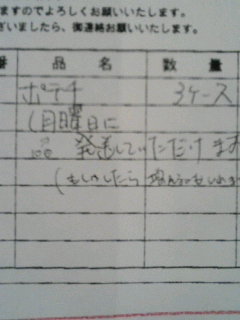 ますのでよろしくお願いいたします。
ざいましたら、御連絡お願いいたします。
品 名 数 量
ポテチ 3ケース
(月曜日に
品 発送していただけます
(もしかしたら